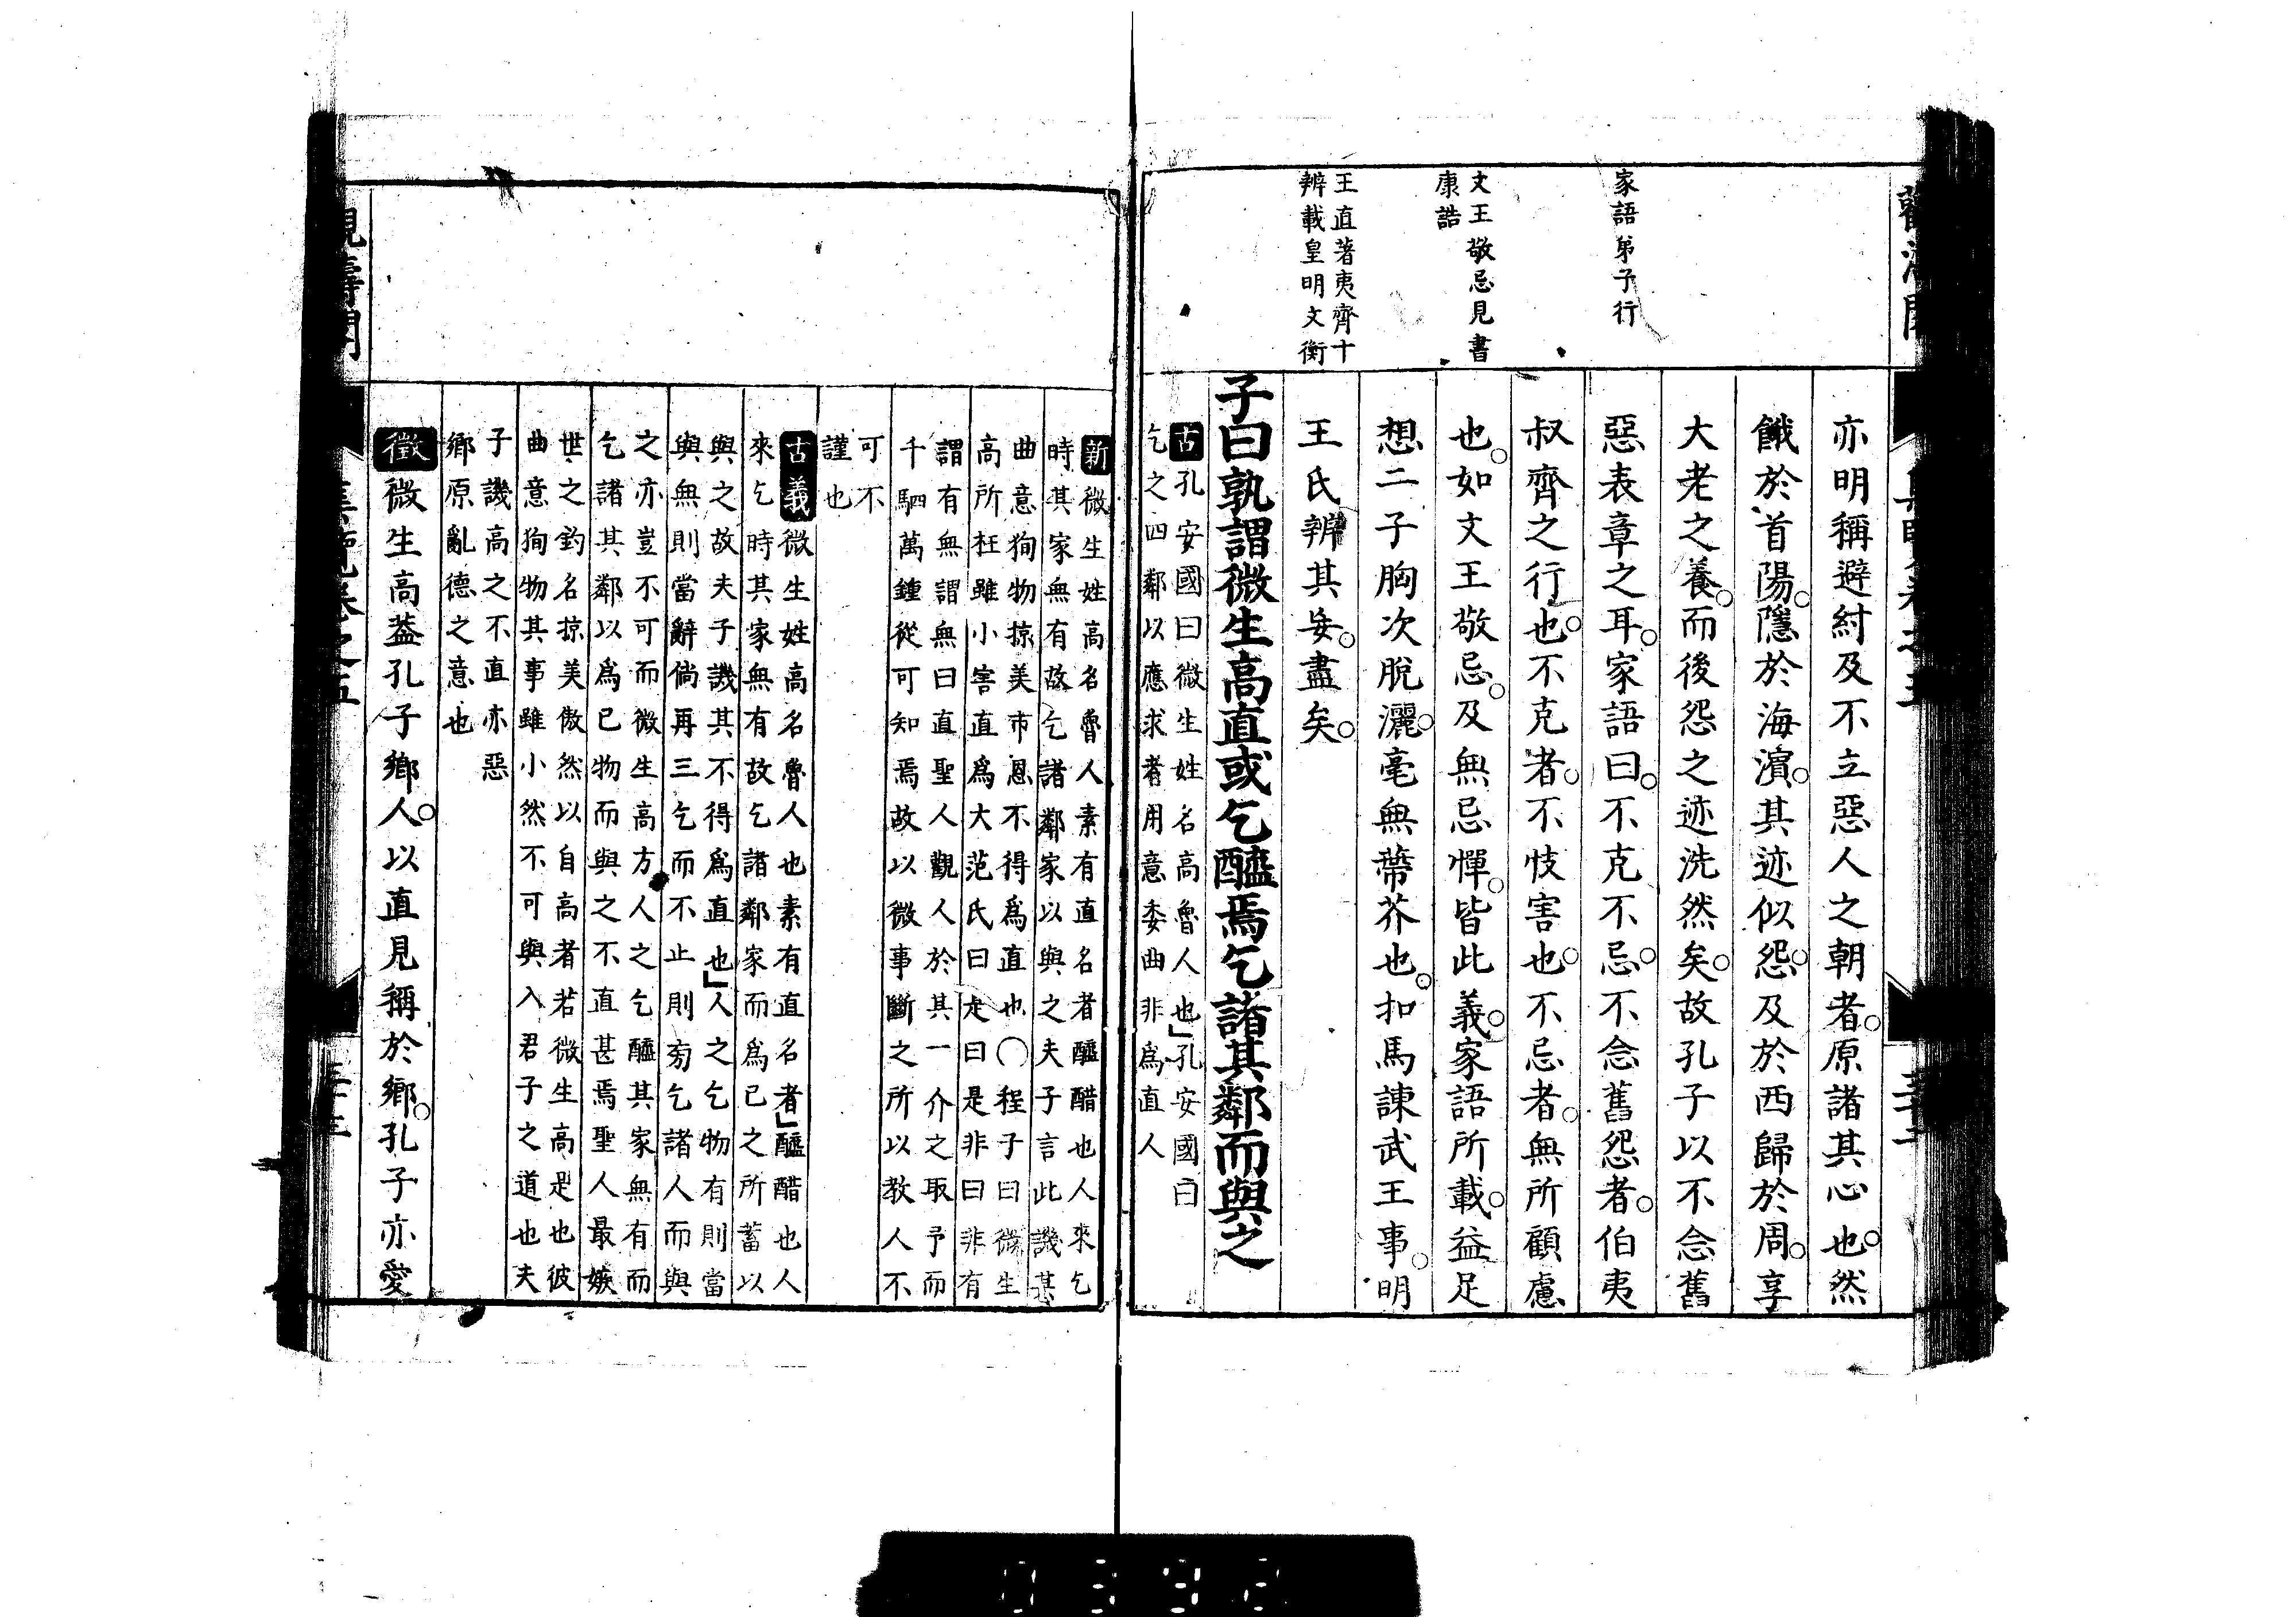 家語弟子行
文王敬忌見書
康誥
王直著夷齊十
辨載皇明文衡
亦明稱避紂及不立惡人之朝者。原諸其心也。然
餓於首陽。隱於海濱。其迹似怨。及於西歸於周。享
大老之養。而後怨之迹洗然矣。故孔子以不念舊
惡表章之耳。家語曰。不克不忌。不念舊怨者。伯夷
叔齊之行也。不克者。不忮害也。不忌者。無所顧慮
也。如文王敬忌。及無忌憚。皆此義。家語所載。益足
想二子胸次脫灑。毫無蔕芥也。扣馬諫武王事。明
王氏辨其妄。盡矣。
子曰孰謂微生高直或乞醯焉乞諸其鄰而與之
古孔安國曰微生姓名高魯人也」孔安國曰
乞之四鄰以應求者用意委曲非爲直人
新微生姓高名魯人素有直名者醯醋也人來乞
時其家無有故乞諸鄰家以與之夫子言此譏其
曲意狥物掠美市恩不得爲直也○程子曰微生
高所枉雖小害直爲大范氏曰是曰是非曰非有
謂有無謂無曰直聖人觀人於其一介之取予而
千駟萬鍾從可知焉故以微事斷之所以教人不
可不
謹也
古義微生姓高名魯人也素有直名者」醯醋也人
來乞時其家無有故乞諸鄰家而爲己之所蓄以
與之故夫子譏其不得爲直也」人之乞物有則當
與無則當辭倘再三乞而不止則旁乞諸人而與
之亦豈不可而微生高方人之乞醯其家無有而
乞諸其鄰以爲己物而與之不直甚焉聖人最嫉
世之釣名掠美傲然以自高者若微生高是也彼
曲意狥物其事雖小然不可與入君子之道也夫
子譏高之不直亦惡
鄉原亂德之意也
徵微生高蓋孔子鄉人。以直見稱於鄉。孔子亦愛